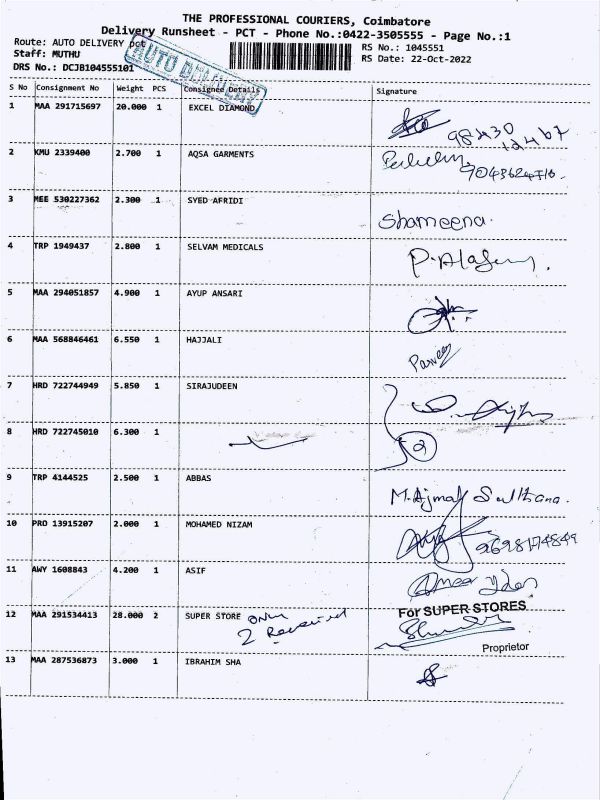 THE PROFESSIONAL COURIERS, Coimbatore
Delivery Runsheet - PCT - Phone No.:0422-3505555 - Page No.:1
Route: AUTO DELIVERY pct
RS No.: 1045551
Staff: MUTHU
RS Date: 22-Oct-2022
DRS No.: DCJB104555101
AUTO DELIVERY
S No Consignment No Weight PCS Consignee Details Signature
1 MAA 291715697 20.000 1 EXCEL DIAMOND
2 KMU 2339400 2.700 1 AQSA GARMENTS
3 MEE 530227362 2.300 1 SYED AFRIDI Shameena.
4 TRP 1949437 2.800 1 SELVAM MEDICALS
5 MAA 294051857 4.900 1 AYUP ANSARI
6 MAA 568846461 6.550 1 HAJJALI
7 HRD 722744949 5.850 1 SIRAJUDEEN
8 HRD 722745010 6.300 1 2
9 TRP 4144525 2.500 1 ABBAS M.Ajmal Sulthana.
10 PRO 13915207 2.000 1 MOHAMED NIZAM 9698174849
11 AWY 1608843 4.200 1 ASIF
12 MAA 291534413 28.000 2 SUPER STORE only For SUPER STORES
2 Received
Proprietor
13 MAA 287536873 3.000 1 IBRAHIM SHA